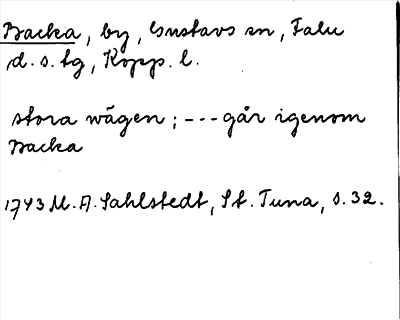 Backa, by, Gustavs sn, Falu
d.s. tg, Kopp. l.
stora wägen; --- går igenom
Backa
1743 M. A. Sahlstedt, St. Tuna, s. 32.